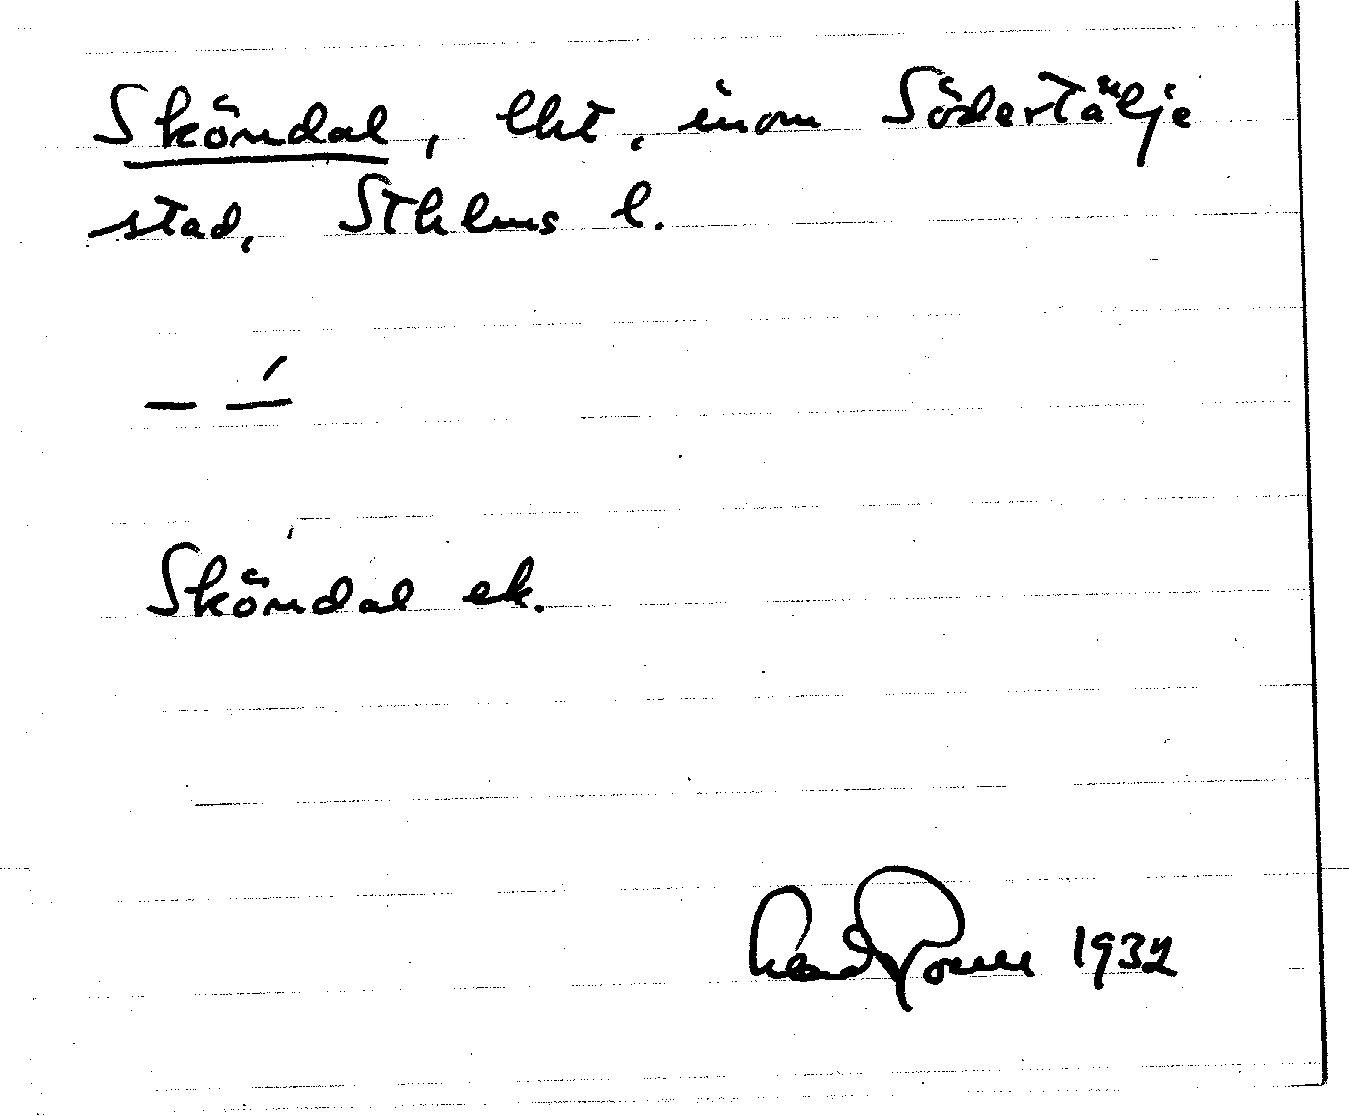 Sköndal, lht, inom Södertälje
stad, Sthlms l.
Sköndal ek.
1932